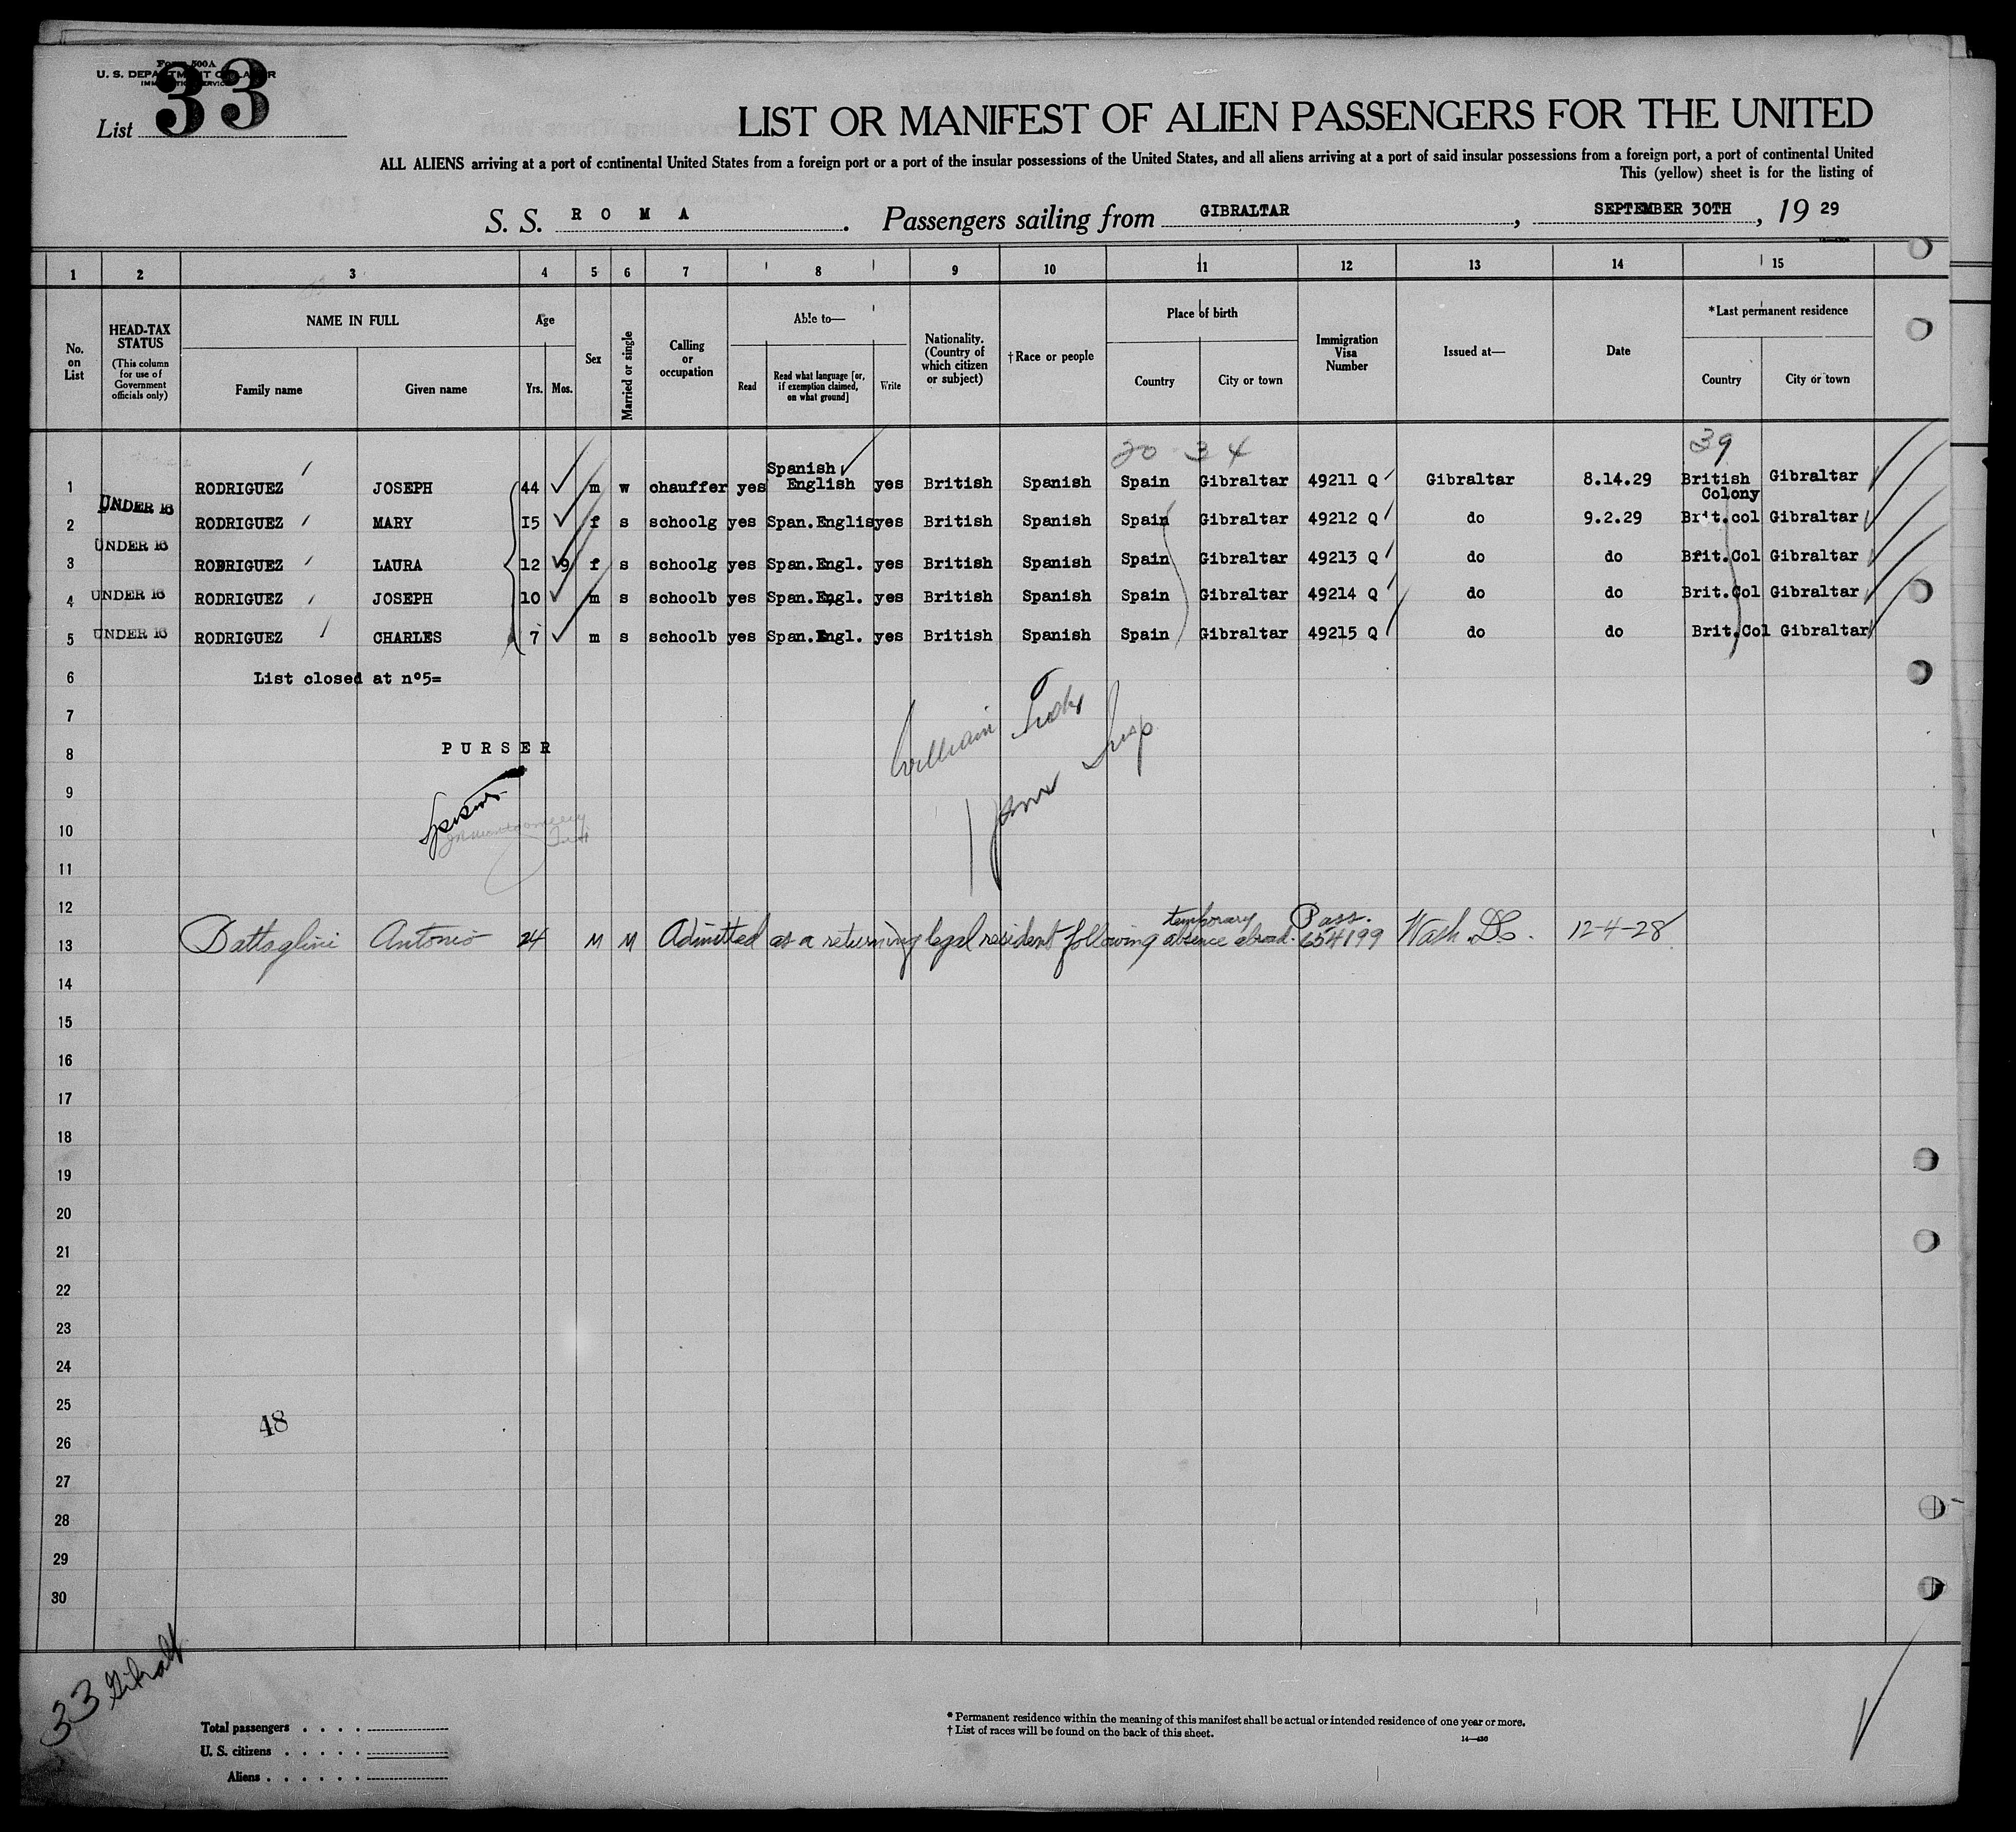 Form 500A
U. S. DEPARTMENT OF LABOR
IMMIGRATION SERVICE
List 33
LIST OR MANIFEST OF ALIEN PASSENGERS FOR THE UNITED
ALL ALIENS arriving at a port of continental United States from a foreign port or a port of the insular possessions of the United States, and all aliens arriving at a port of said insular possessions from a foreign port, a port of continental United
This (yellow) sheet is for the listing of
S. S. ROMA. Passengers sailing from GIBRALTAR, SEPTEMBER 30TH, 19 29
1 2 3 4 5 6 7 8 9 10 11 12 13 14 15
No. on List
HEAD-TAX STATUS (This column for use of Government officials only)
NAME IN FULL
Family name Given name
Age
Yrs. Mos.
Sex
Married or single
Calling or occupation
Able to—
Read
Read what language [or, if exemption claimed, on what ground]
Write
Nationality. (Country of which citizen or subject)
†Race or people
Place of birth
Country City or town
Immigration Visa Number
Issued at—
Date
*Last permanent residence
Country City or town
20 3 4 39
1 RODRIGUEZ JOSEPH 44 m w chauffer yes Spanish English yes British Spanish Spain Gibraltar 49211 Q Gibraltar 8.14.29 British Colony Gibraltar
2 UNDER 16 RODRIGUEZ MARY I5 f s schoolg yes Span.Englis yes British Spanish Spain Gibraltar 49212 Q do 9.2.29 Brit.col Gibraltar
3 UNDER 16 RODRIGUEZ LAURA 12 9 f s schoolg yes Span.Engl. yes British Spanish Spain Gibraltar 49213 Q do do Brit.Col Gibraltar
4 UNDER 16 RODRIGUEZ JOSEPH 10 m s schoolb yes Span.Engl. yes British Spanish Spain Gibraltar 49214 Q do do Brit.Col Gibraltar
5 UNDER 16 RODRIGUEZ CHARLES 7 m s schoolb yes Span.Engl. yes British Spanish Spain Gibraltar 49215 Q do do Brit.Col Gibraltar
6 List closed at n°5=
7
William Insp
8 PURSER
9
10
11
12
13 Battaglini Antonio 24 M M Admitted as a returning legal resident following temporary absence abroad. Pass. 654199 Wash D.C. 12-4-28
14
15
16
17
18
19
20
21
22
23
24
25
48
26
27
28
29
30
33 Gibralt
Total passengers . . . .
U. S. citizens . . . . .
Aliens . . . . . .
* Permanent residence within the meaning of this manifest shall be actual or intended residence of one year or more.
† List of races will be found on the back of this sheet.
14—430